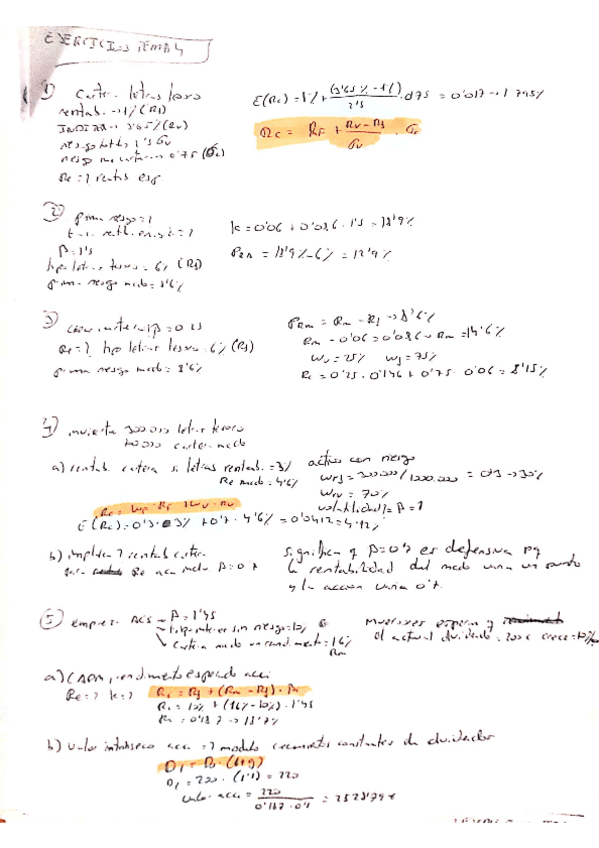 EJERCICIOS TEMA 4
1) Cartera letras tesoro
rentab. → 1% (Rf)
3'65% (Rv)
riesgo 2'5 σv
riesgo mi cartera → 0'75 (σc)
Rc = ? rentab esp
E(Rc) = 1% + (3'65% - 1%) / 2'5 · 0'75 = 0'017 → 1'795%
Rc = Rf + Rv - Rf / σv · σc
2) prima riesgo = ?
β = 1'5
tipo letras tesoro = 6% (Rf)
prima riesgo mcdo = 8'6%
k = 0'06 + 0'086 · 1'5 = 18'9%
PRM = 18'9% - 6% = 12'9%
3) cartera β = 0'25
Re = ? tipo letras tesoro 6% (Rf)
prima riesgo mcdo = 8'6%
PRM = Rm - Rf → 8'6%
Rm - 0'06 = 0'086 → Rm = 14'6%
Wv = 25% Wf = 75%
Rc = 0'25 · 0'146 + 0'75 · 0'06 = 8'15%
4) invierte 300.000 letras tesoro
700.000 cartera mcdo
a) rentab. cartera si letras rentab. = 3%
Re mcdo = 4'6%
activo con riesgo
Wrf = 300.000 / 1000.000 = 0'3 → 30%
Wrv = 70%
volatilidad β = 1
Rc = Wf · Rf + Wv · Rv
E(Rc) = 0'3 · 3% + 0'7 · 4'6% = 0'0412 = 4'12%
b) implica ? rentab cartera
β = 0'7
significa q β = 0'7 es defensiva pq
la rentabilidad del mcdo varia un punto
y la accion varia 0'7.
5) empresa ACS → β = 1'45
tipo interes sin riesgo = 10%
cartera mcdo rendimento = 16%
Rm
inversores esperan q
el actual dividendo 200€ crece = 10%
a) CAPM, rendimento esperado acci
Re = ? k = ?
Ri = Rf + (Rm - Rf) · βi
Ri = 10% + (16% - 10%) · 1'45
Ri = 0'187 → 18'7%
b) Valor intrinseco acc = ? modelo crecimiento constante de dividendos
D1 = D0 · (1+g)
D1 = 200 · (1'1) = 220
valor acc = 220 / 0'187 - 0'1 = 2528'74 €